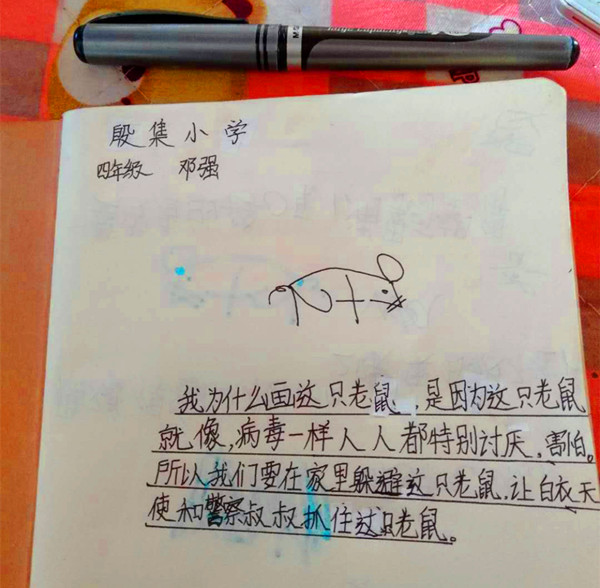 段集小学
四年级 邓强
我为什么画这只老鼠,是因为这只老鼠
就像,病毒一样人人都特别讨厌,害怕。
所以我们要在家里躲避这只老鼠,让白衣天
使和警察叔叔抓住这只老鼠。